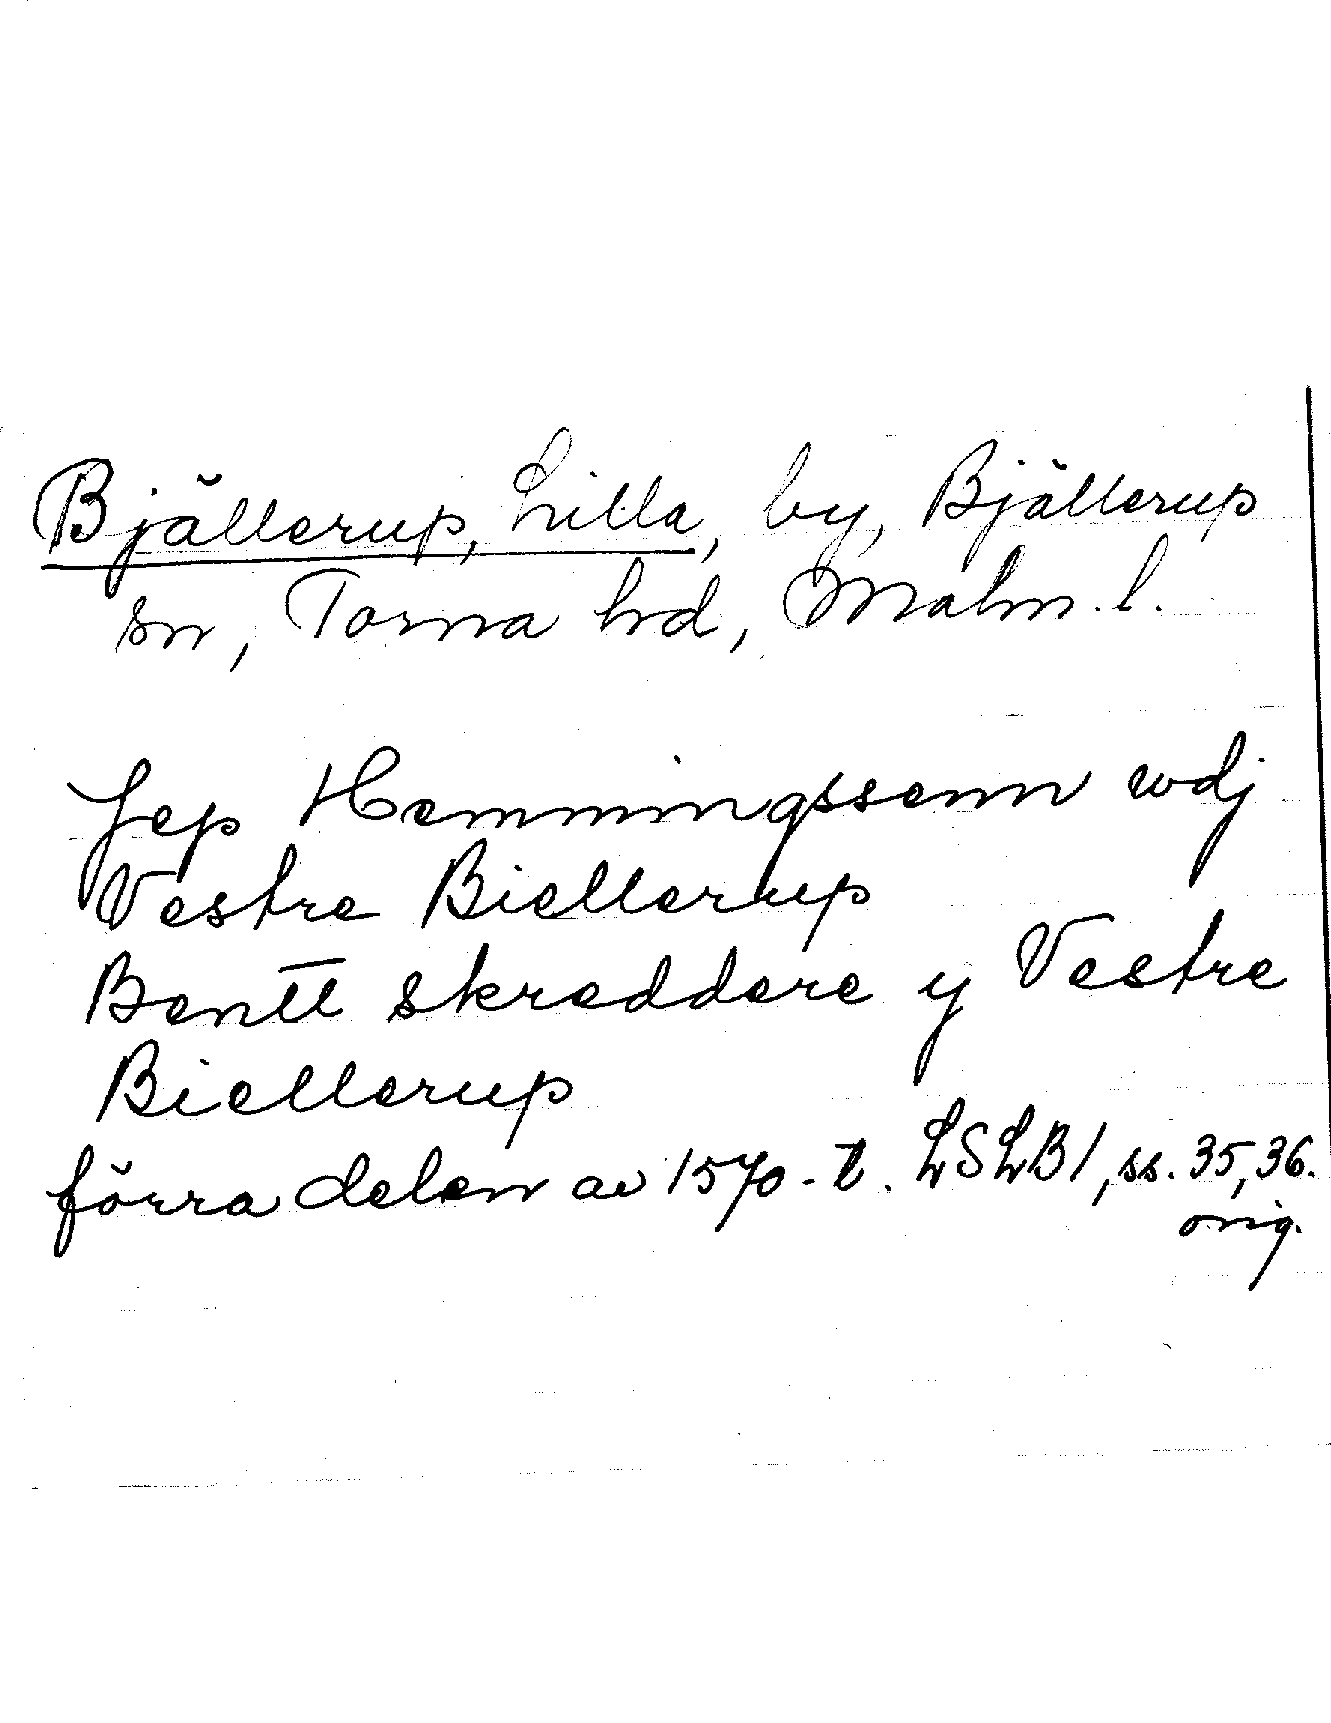 Bjällerup, Lilla, by, Bjällerup
sn, Torna hd, Malm. l.
Jep Hemmingssenn wdj
Vestre Biellerup
Bentt skreddere y Vestre
Biellerup
förra delen av 1570-t. LSLB1, ss. 35, 36.
orig.